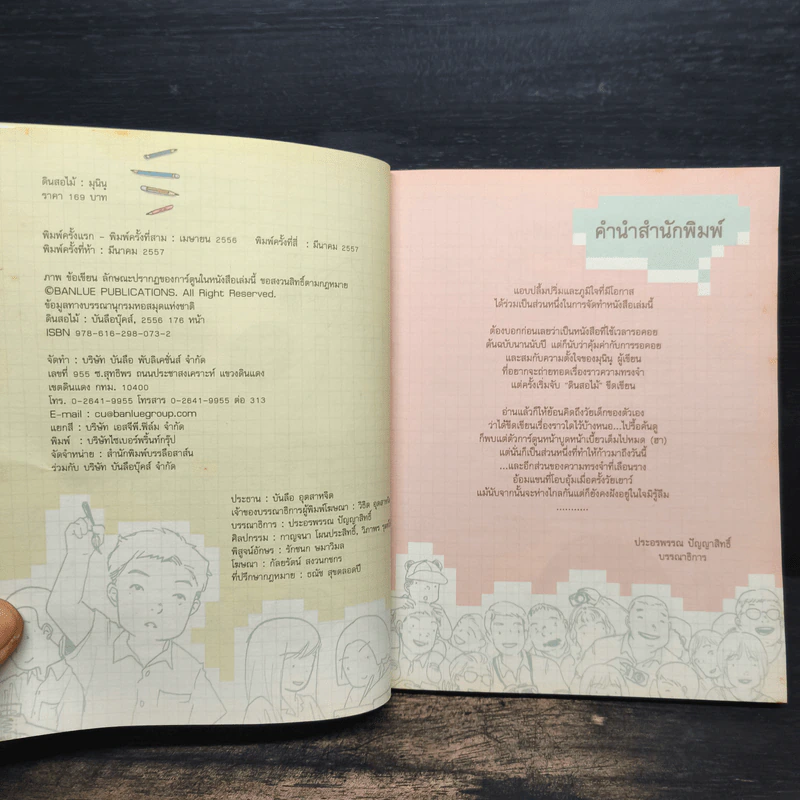 ดินสอไม้ : มุนินฺ
ราคา 169 บาท
พิมพ์ครั้งแรก - พิมพ์ครั้งที่สาม : เมษายน 2556 พิมพ์ครั้งที่สี่ : มีนาคม 2557
พิมพ์ครั้งที่ห้า : มีนาคม 2557
ภาพ ข้อเขียน ลักษณะปรากฏของการ์ตูนในหนังสือเล่มนี้ ขอสงวนสิทธิ์ตามกฎหมาย
©BANLUE PUBLICATIONS. All Right Reserved.
ข้อมูลทางบรรณานุกรมหอสมุดแห่งชาติ
ดินสอไม้ : บันลือบุ๊คส์, 2556 176 หน้า
ISBN 978-616-298-073-2
จัดทำ : บริษัท บันลือ พับลิเคชั่นส์ จำกัด
เลขที่ 955 ซ.สุทธิพร ถนนประชาสงเคราะห์ แขวงดินแดง
เขตดินแดง กทม. 10400
โทร. 0-2641-9955 โทรสาร 0-2641-9955 ต่อ 313
E-mail : cu@banluegroup.com
แยกสี : บริษัท เอสจีพี.ฟิล์ม จำกัด
พิมพ์ : บริษัทไซเบอร์พริ้นท์กรุ๊ป
จัดจำหน่าย : สำนักพิมพ์บรรลือสาส์น
ร่วมกับ บริษัท บันลือบุ๊คส์ จำกัด
ประธาน : บันลือ อุตสาหจิต
เจ้าของบรรณาธิการผู้พิมพ์โฆษณา : วิธิต
บรรณาธิการ : ประอรพรรณ ปัญญาสิทธิ์
ศิลปกรรม : กาญจนา โผนประสิทธิ์, วิภาพร
พิสูจน์อักษร : รักชนก ษมาวิมล
โฆษณา : กัลยรัตน์ สงวนกชกร
ที่ปรึกษากฎหมาย : ธณัช สุขตลอดปี
คำนำสำนักพิมพ์
แอบปลื้มปริ่มและภูมิใจที่มีโอกาส
ได้ร่วมเป็นส่วนหนึ่งในการจัดทำหนังสือเล่มนี้
ต้องบอกก่อนเลยว่าเป็นหนังสือที่ใช้เวลารอคอย
ต้นฉบับนานนับปี แต่ก็นับว่าคุ้มค่ากับการรอคอย
และสมกับความตั้งใจของมุนินฺ ผู้เขียน
ที่อยากจะถ่ายทอดเรื่องราวความทรงจำ
แต่ครั้งเริ่มจับ "ดินสอไม้" ขีดเขียน
อ่านแล้วก็ให้ย้อนคิดถึงวัยเด็กของตัวเอง
ว่าได้ขีดเขียนเรื่องราวใดไว้บ้างหนอ...ไปรื้อค้นดู
ก็พบแต่ตัวการ์ตูนหน้าบูดหน้าเบี้ยวเต็มไปหมด (ฮา)
แต่นั่นก็เป็นส่วนหนึ่งที่ทำให้ก้าวมาถึงวันนี้
...และอีกส่วนของความทรงจำที่เลือนราง
อ้อมแขนที่โอบอุ้มเมื่อครั้งวัยเยาว์
แม้นับจากนั้นจะห่างไกลกันแต่ก็ยังคงฝังอยู่ในใจมิรู้ลืม
...........
ประอรพรรณ ปัญญาสิทธิ์
บรรณาธิการ